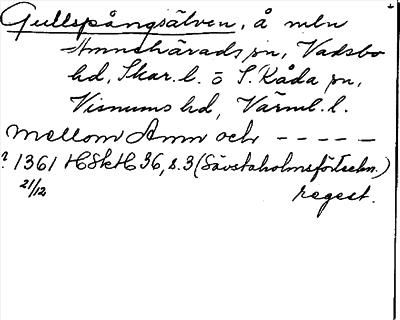 Gullspångsälven, å mln
Amnehärads sn, Vadsbo
hd, Skar. l. o S. Råda sn,
Visnums hd, Värml. l.
mellom Amn och - - - - -
? 1361 HSkH 36, s. 3 (Sävstaholmsförteckn.)
21/12 regest.